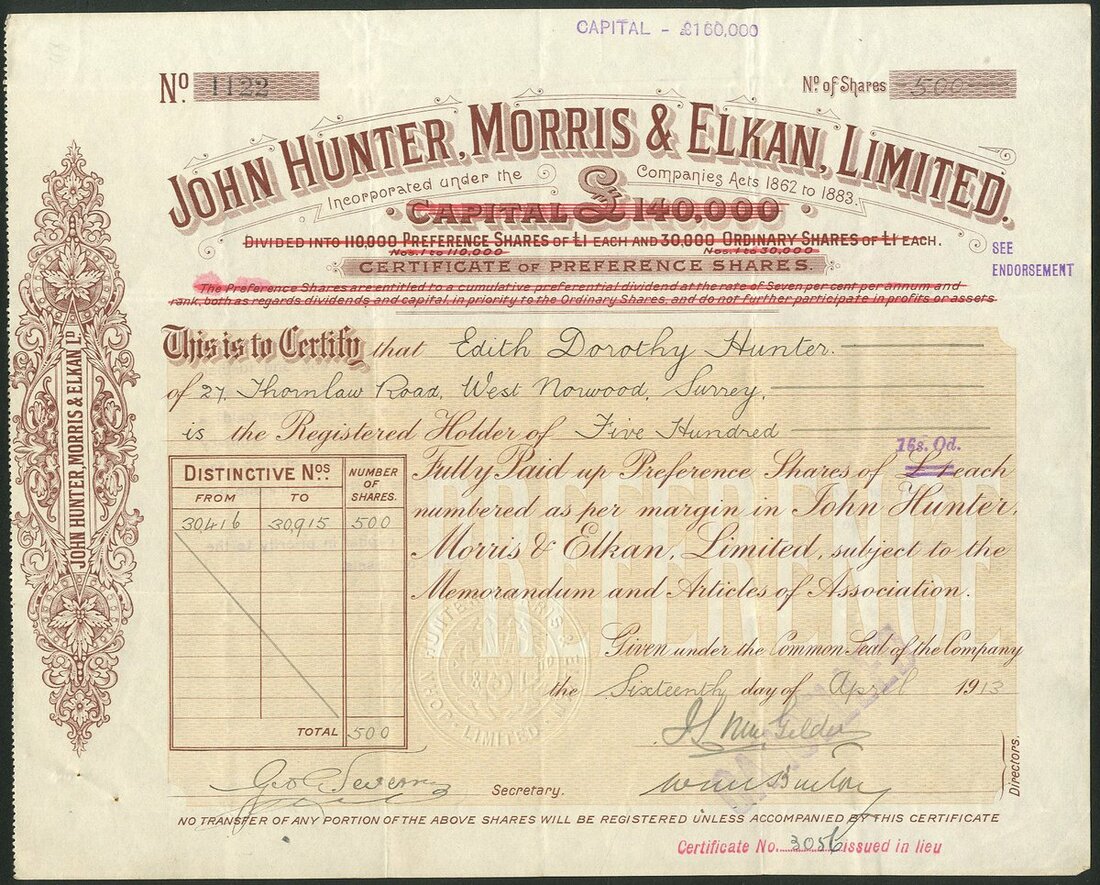 CAPITAL - £160,000
No. 1122
No. of Shares 500
JOHN HUNTER, MORRIS & ELKAN, LIMITED.
Incorporated under the Companies Acts 1862 to 1883.
CAPITAL £140,000
DIVIDED INTO 110,000 PREFERENCE SHARES OF £1 EACH AND 30,000 ORDINARY SHARES OF £1 EACH.
Nos. 1 to 110,000 Nos. 1 to 30,000
SEE
ENDORSEMENT
CERTIFICATE OF PREFERENCE SHARES.
The Preference Shares are entitled to a cumulative preferential dividend at the rate of Seven per cent per annum and
rank, both as regards dividends and capital, in priority to the Ordinary Shares, and do not further participate in profits or assets
JOHN HUNTER, MORRIS & ELKAN LD
This is to Certify that Edith Dorothy Hunter.
of 27, Thornlaw Road, West Norwood, Surrey,
is the Registered Holder of Five Hundred
16s. 0d.
Fully Paid up Preference Shares of £1 each
numbered as per margin in John Hunter,
Morris & Elkan, Limited, subject to the
Memorandum and Articles of Association.
PREFERENCE
DISTINCTIVE Nos. NUMBER OF SHARES.
FROM TO
30,416 30,915 500
TOTAL 500
Given under the Common Seal of the Company
the Sixteenth day of April 1913
LIMITED
Secretary.
Directors.
NO TRANSFER OF ANY PORTION OF THE ABOVE SHARES WILL BE REGISTERED UNLESS ACCOMPANIED BY THIS CERTIFICATE
Certificate No. 3056 issued in lieu